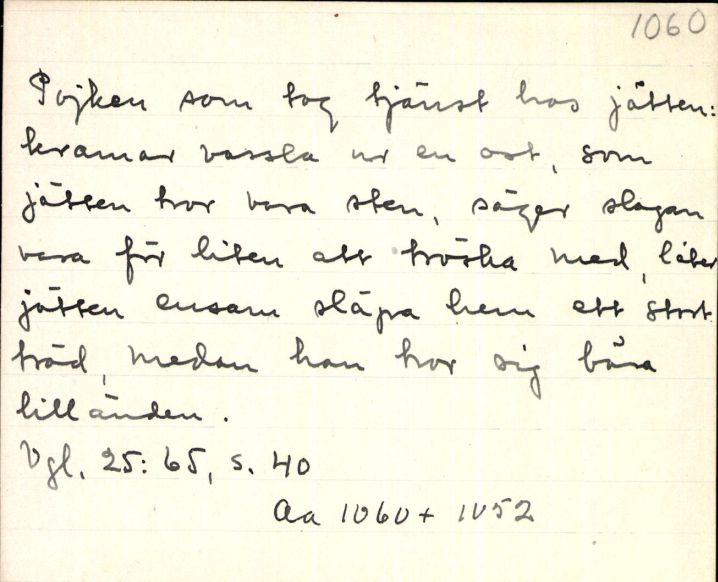 1060
Pojken som tog tjänst hos jätten:
kramar vassla ur en ost, som
jätten tror vara sten, säger slagan
vara för liten att tröska med, låter
jätten ensam släpa hem ett stort
träd, medan han tror sig bära
lilländen.
Vgl. 25:65, s. 40
Aa 1060 + 1052